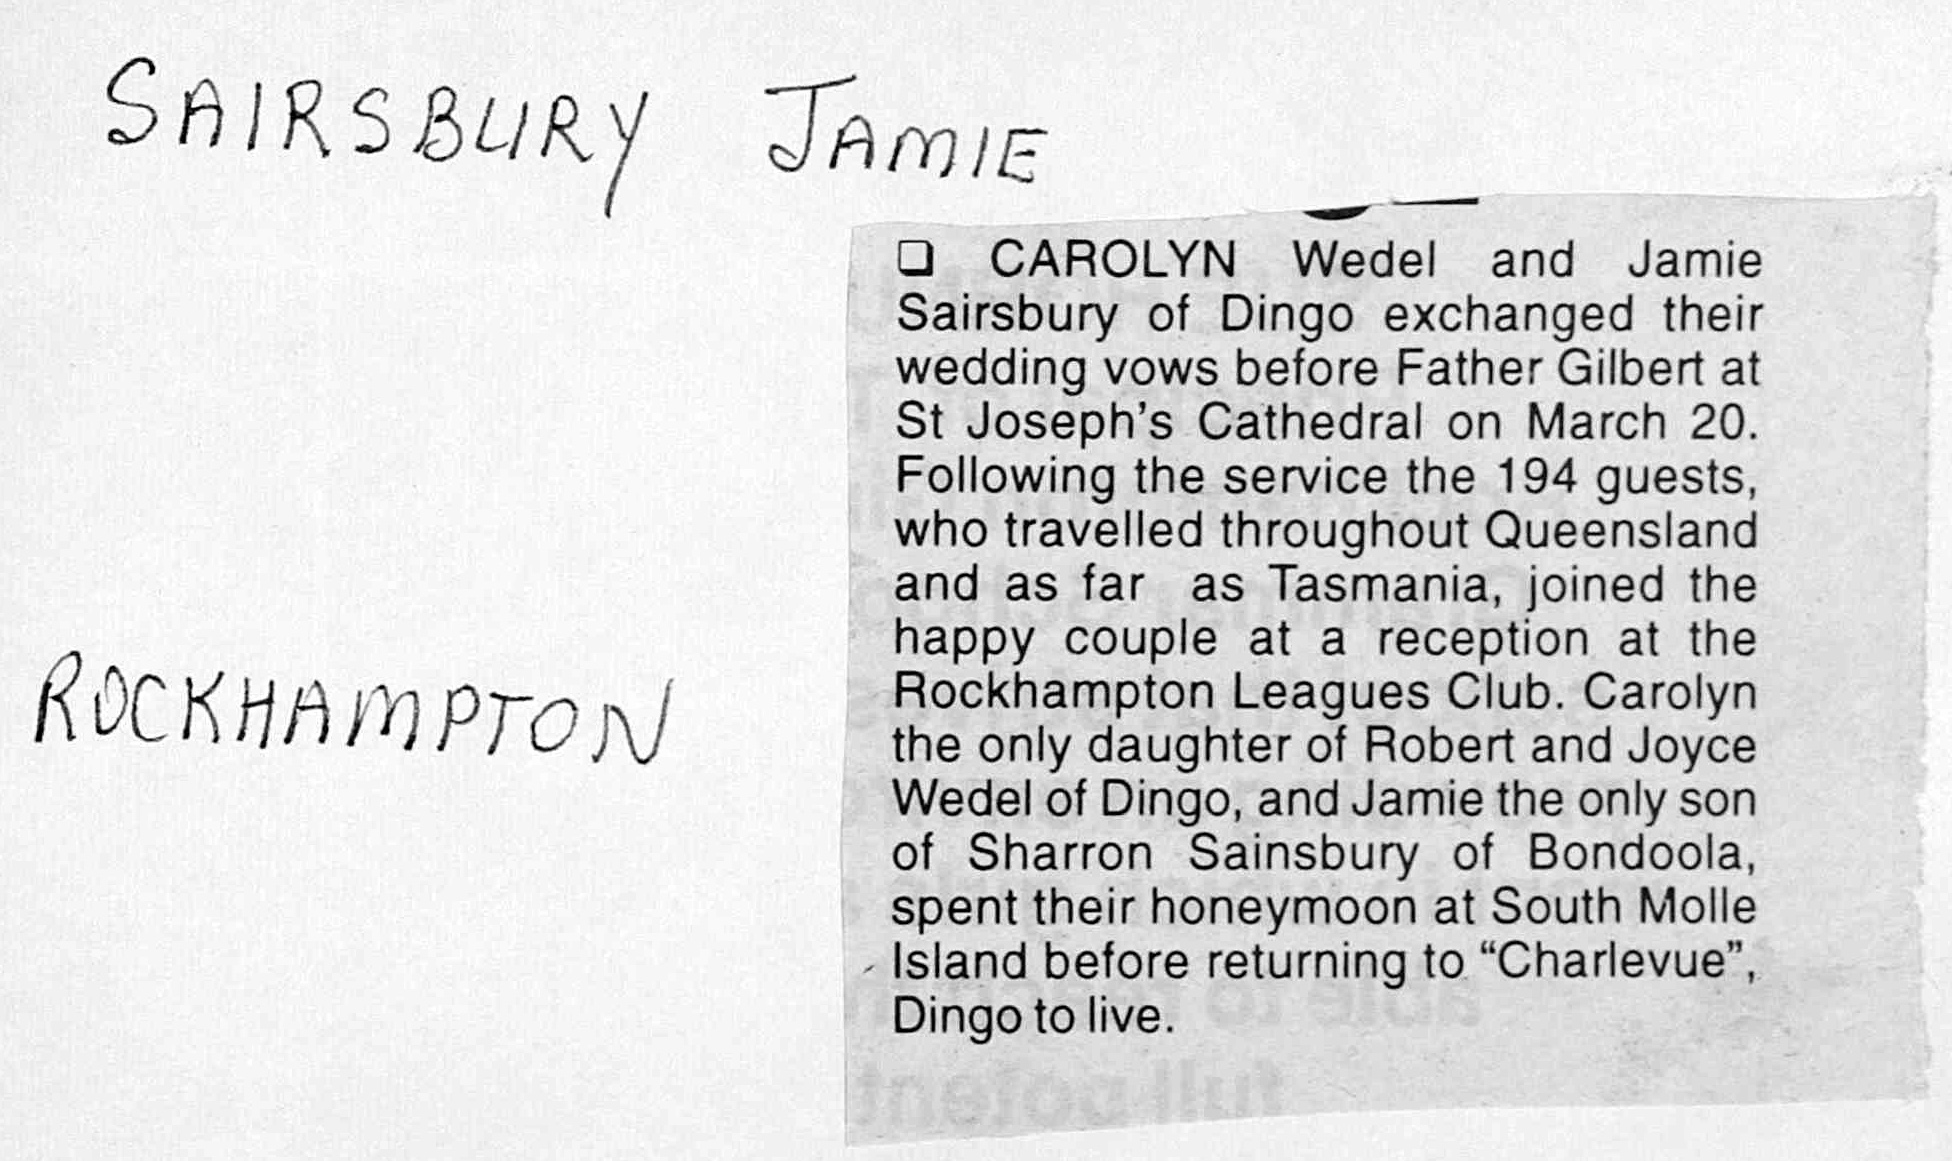 SAIRSBURY JAMIE
❏ CAROLYN Wedel and Jamie
Sairsbury of Dingo exchanged their
wedding vows before Father Gilbert at
St Joseph's Cathedral on March 20.
Following the service the 194 guests,
who travelled throughout Queensland
and as far as Tasmania, joined the
happy couple at a reception at the
Rockhampton Leagues Club. Carolyn
the only daughter of Robert and Joyce
Wedel of Dingo, and Jamie the only son
of Sharron Sainsbury of Bondoola,
spent their honeymoon at South Molle
Island before returning to “Charlevue”,
Dingo to live.
ROCKHAMPTON